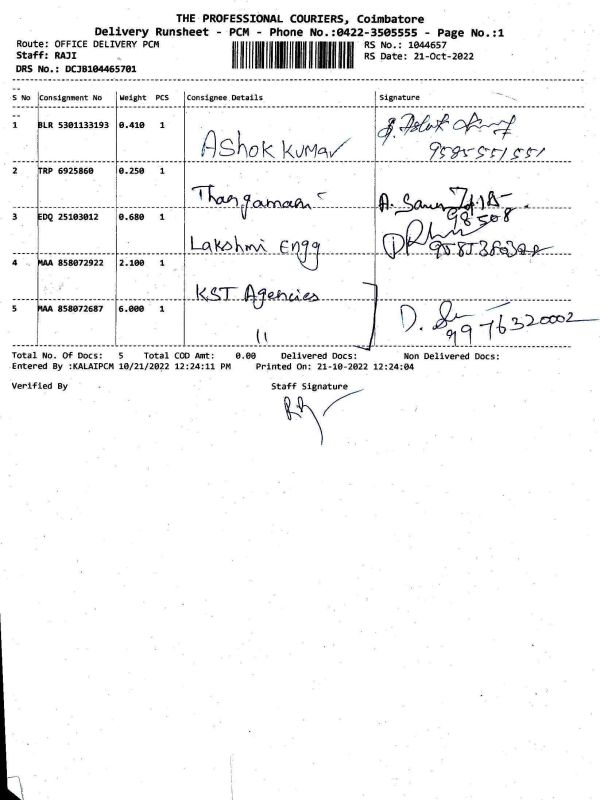 THE PROFESSIONAL COURIERS, Coimbatore
Delivery Runsheet - PCM - Phone No.:0422-3505555 - Page No.:1
Route: OFFICE DELIVERY PCM
RS No.: 1044657
Staff: RAJI
RS Date: 21-Oct-2022
DRS No.: DCJB104465701
S No Consignment No Weight PCS Consignee Details Signature
1 BLR 5301133193 0.410 1 Ashok Kumar
9585551551
2 TRP 6925860 0.250 1 Thangamani
3 EDQ 25103012 0.680 1 Lakshmi Engg
4 MAA 858072922 2.100 1 KST Agencies
5 MAA 858072687 6.000 1 11 D.
9976320002
Total No. Of Docs: 5 Total COD Amt: 0.00 Delivered Docs: Non Delivered Docs:
Entered By :KALAIPCM 10/21/2022 12:24:11 PM Printed On: 21-10-2022 12:24:04
Verified By Staff Signature